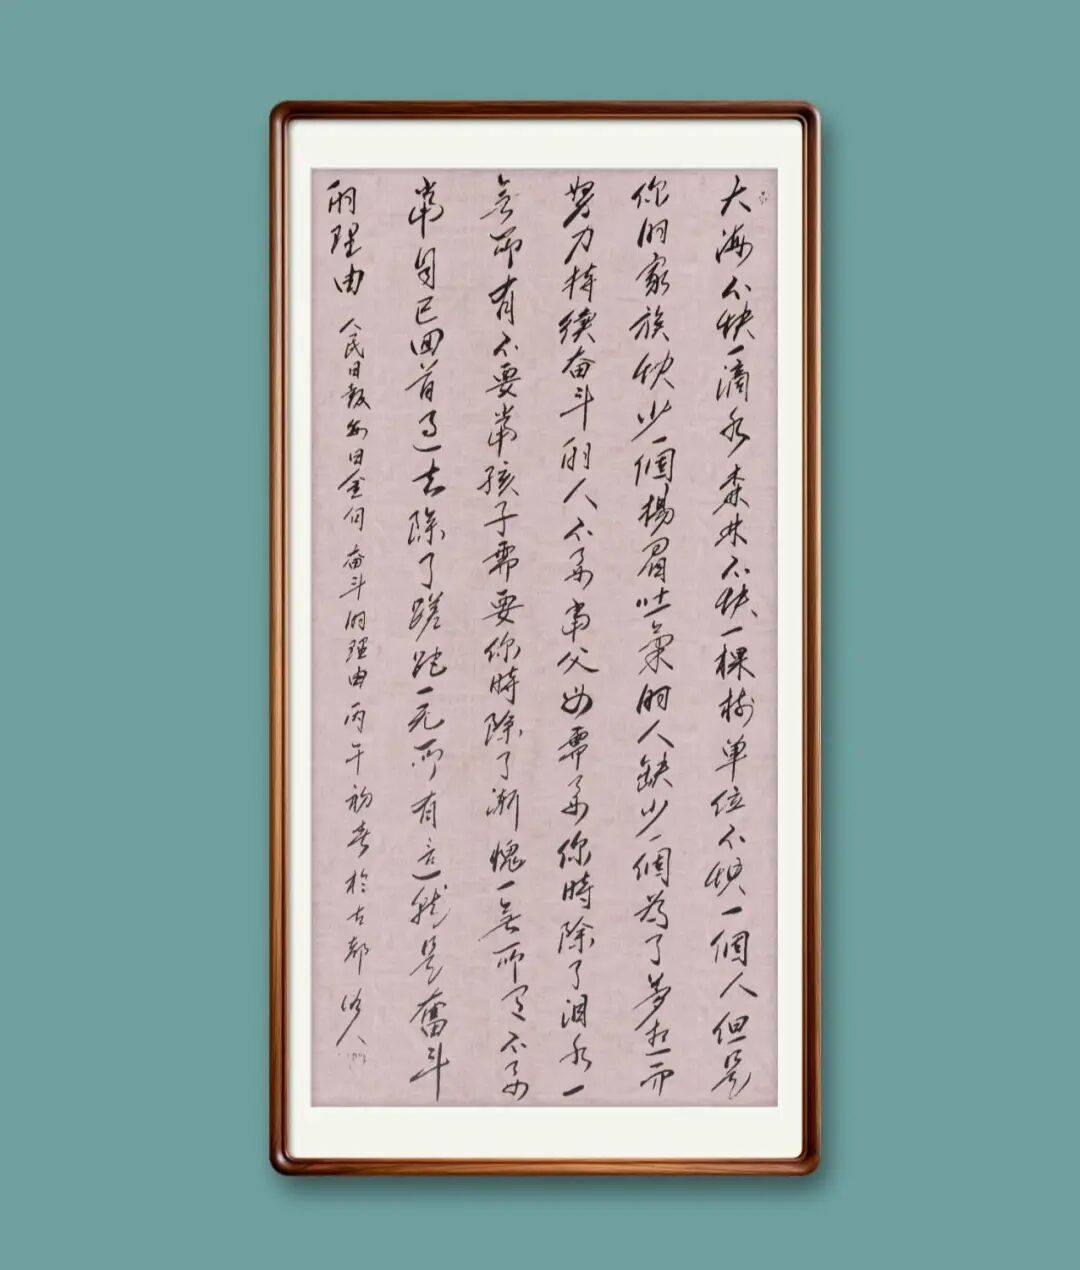 大海不缺一滴水森林不缺一棵樹单位不缺一個人但是
你的家族缺少一個楊眉吐氣的人缺少一個為了夢想而
努力持續奋斗的人不要當父母需要你時除了泪水一
無所有不要當孩子需要你時除了漸愧一無所有不要
當自已回首過去除了蹉跎一无所有這就是奮斗
的理由
人民日報每日金句奋斗的理由丙午初春於古都